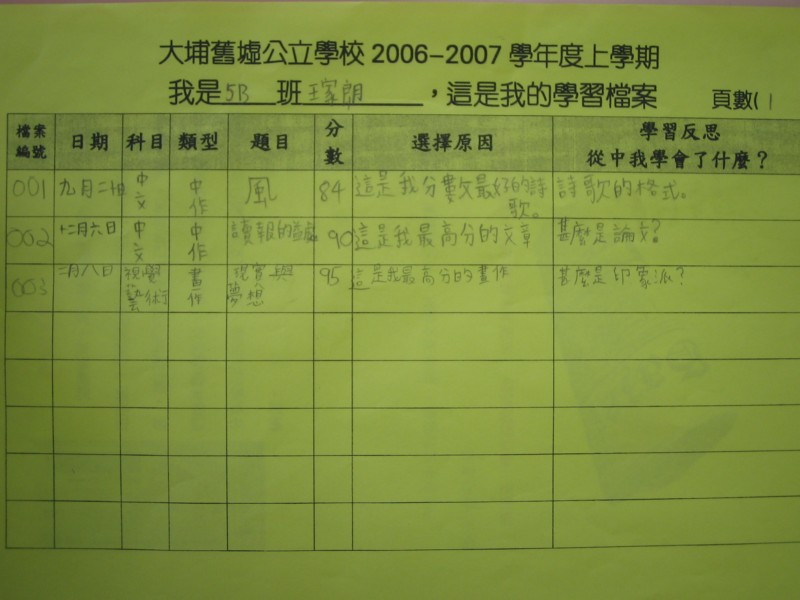 大埔舊墟公立學校 2006-2007 學年度上學期
我是 5B 班 王家朗 ，這是我的學習檔案 頁數( 1
檔案編號 日期 科目 類型 題目 分數 選擇原因 學習反思 從中我學會了什麼？
001 九月二十 中文 中作 風 84 這是我分數最好的詩歌。 詩歌的格式。
002 十二月六日 中文 中作 讀報的益處 90 這是我最高分的文章 甚麼是論文？
003 二月八日 視覺藝術 畫作 現實與夢想 95 這是我最高分的畫作 甚麼是印象派？